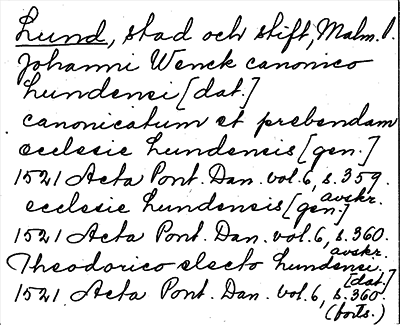 Lund, stad och stift, Malm. l.
Johanni Wenck canonico
Lundensi [dat.]
canonicatum et prebendam
ecclesie Lundensis [gen.]
1521 Acta Pont. Dan. vol. 6, s. 359.
avskr.
ecclesie Lundensis [gen.]
1521 Acta Pont. Dan. vol. 6, s. 360.
avskr.
Theodorico electo Lundensi
[dat.]
1521 Acta Pont. Dan. vol. 6, s. 360.
(forts.)